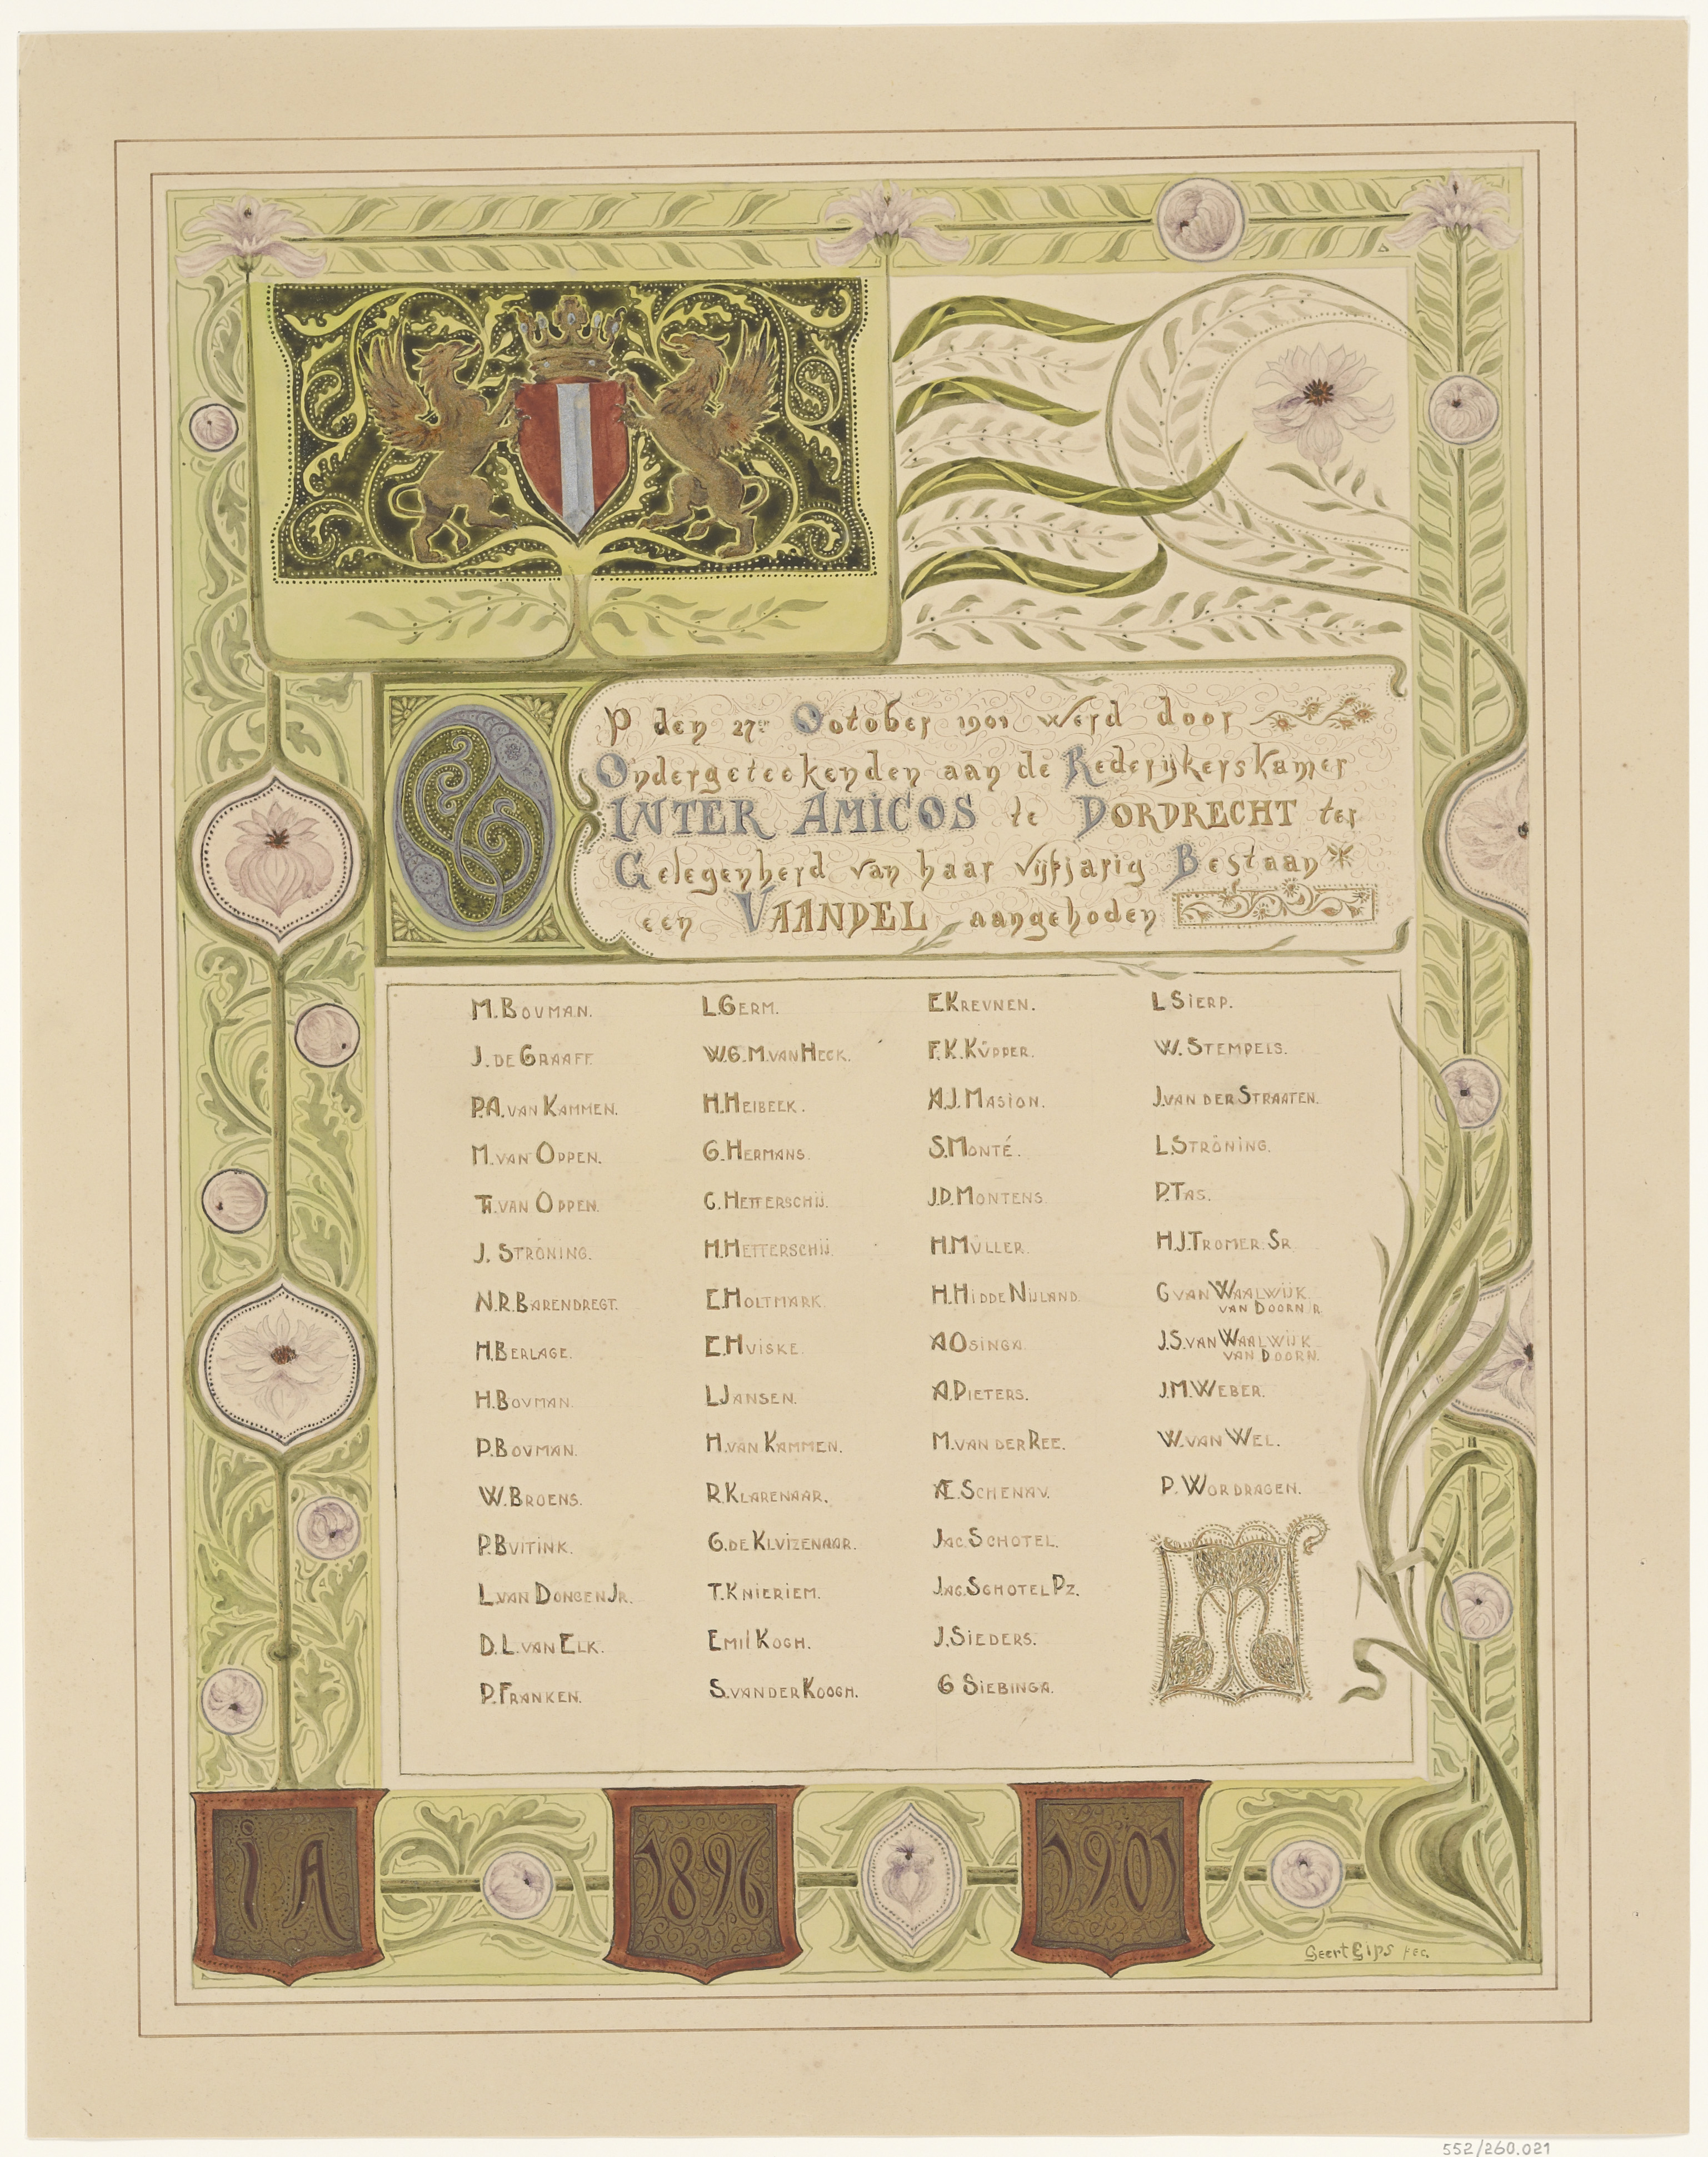 OP den 27en October 1901 werd door
Ondergeteekenden aan de Rederijkerskamer
INTER AMICOS te DORDRECHT ter
Gelegenheid van haar vijfjarig Bestaan
een VAANDEL aangeboden
M. BOUMAN.
J. DE GRAAFF.
P.A. VAN KAMMEN.
M. VAN OPPEN.
TH. VAN OPPEN.
J. STRÖNING.
N.R. BARENDREGT.
H. BERLAGE.
H. BOUMAN.
P. BOUMAN.
W. BROENS.
P. BUITINK.
L. VAN DONGEN JR.
D.L. VAN ELK.
P. FRANKEN.
L. GERM.
W.G.M. VAN HECK.
H. HEIBEEK.
G. HERMANS.
C. HETTERSCHIJ.
H. HETTERSCHIJ.
E. HOLTMARK.
E. HUISKE.
L. JANSEN.
H. VAN KAMMEN.
R. KLARENAAR.
G. DE KLUIZENAAR.
T. KNIERIEM.
EMIL KOCH.
S. VAN DER KOOGH.
E. KREUNEN.
F.K. KÜPPER.
A.J. MASION.
S. MONTÉ.
J.D. MONTENS.
H. MÜLLER.
H. HIDDE NIJLAND.
A. OSINGA.
A. PIETERS.
M. VAN DER REE.
Æ. SCHENAU.
JAC. SCHOTEL.
JAC. SCHOTEL PZ.
J. SIEDERS.
G. SIEBINGA.
L. SIERP.
W. STEMPELS.
J. VAN DER STRAATEN.
L. STRÖNING.
P. TAS.
H.J. TROMER. SR.
G. VAN WAALWIJK
VAN DOORN JR.
J.S. VAN WAALWIJK
VAN DOORN.
J.M. WEBER.
W. VAN WEL.
P. WORDRAGEN.
iA
1896
1901
Geert Gips fec.
552/260.021